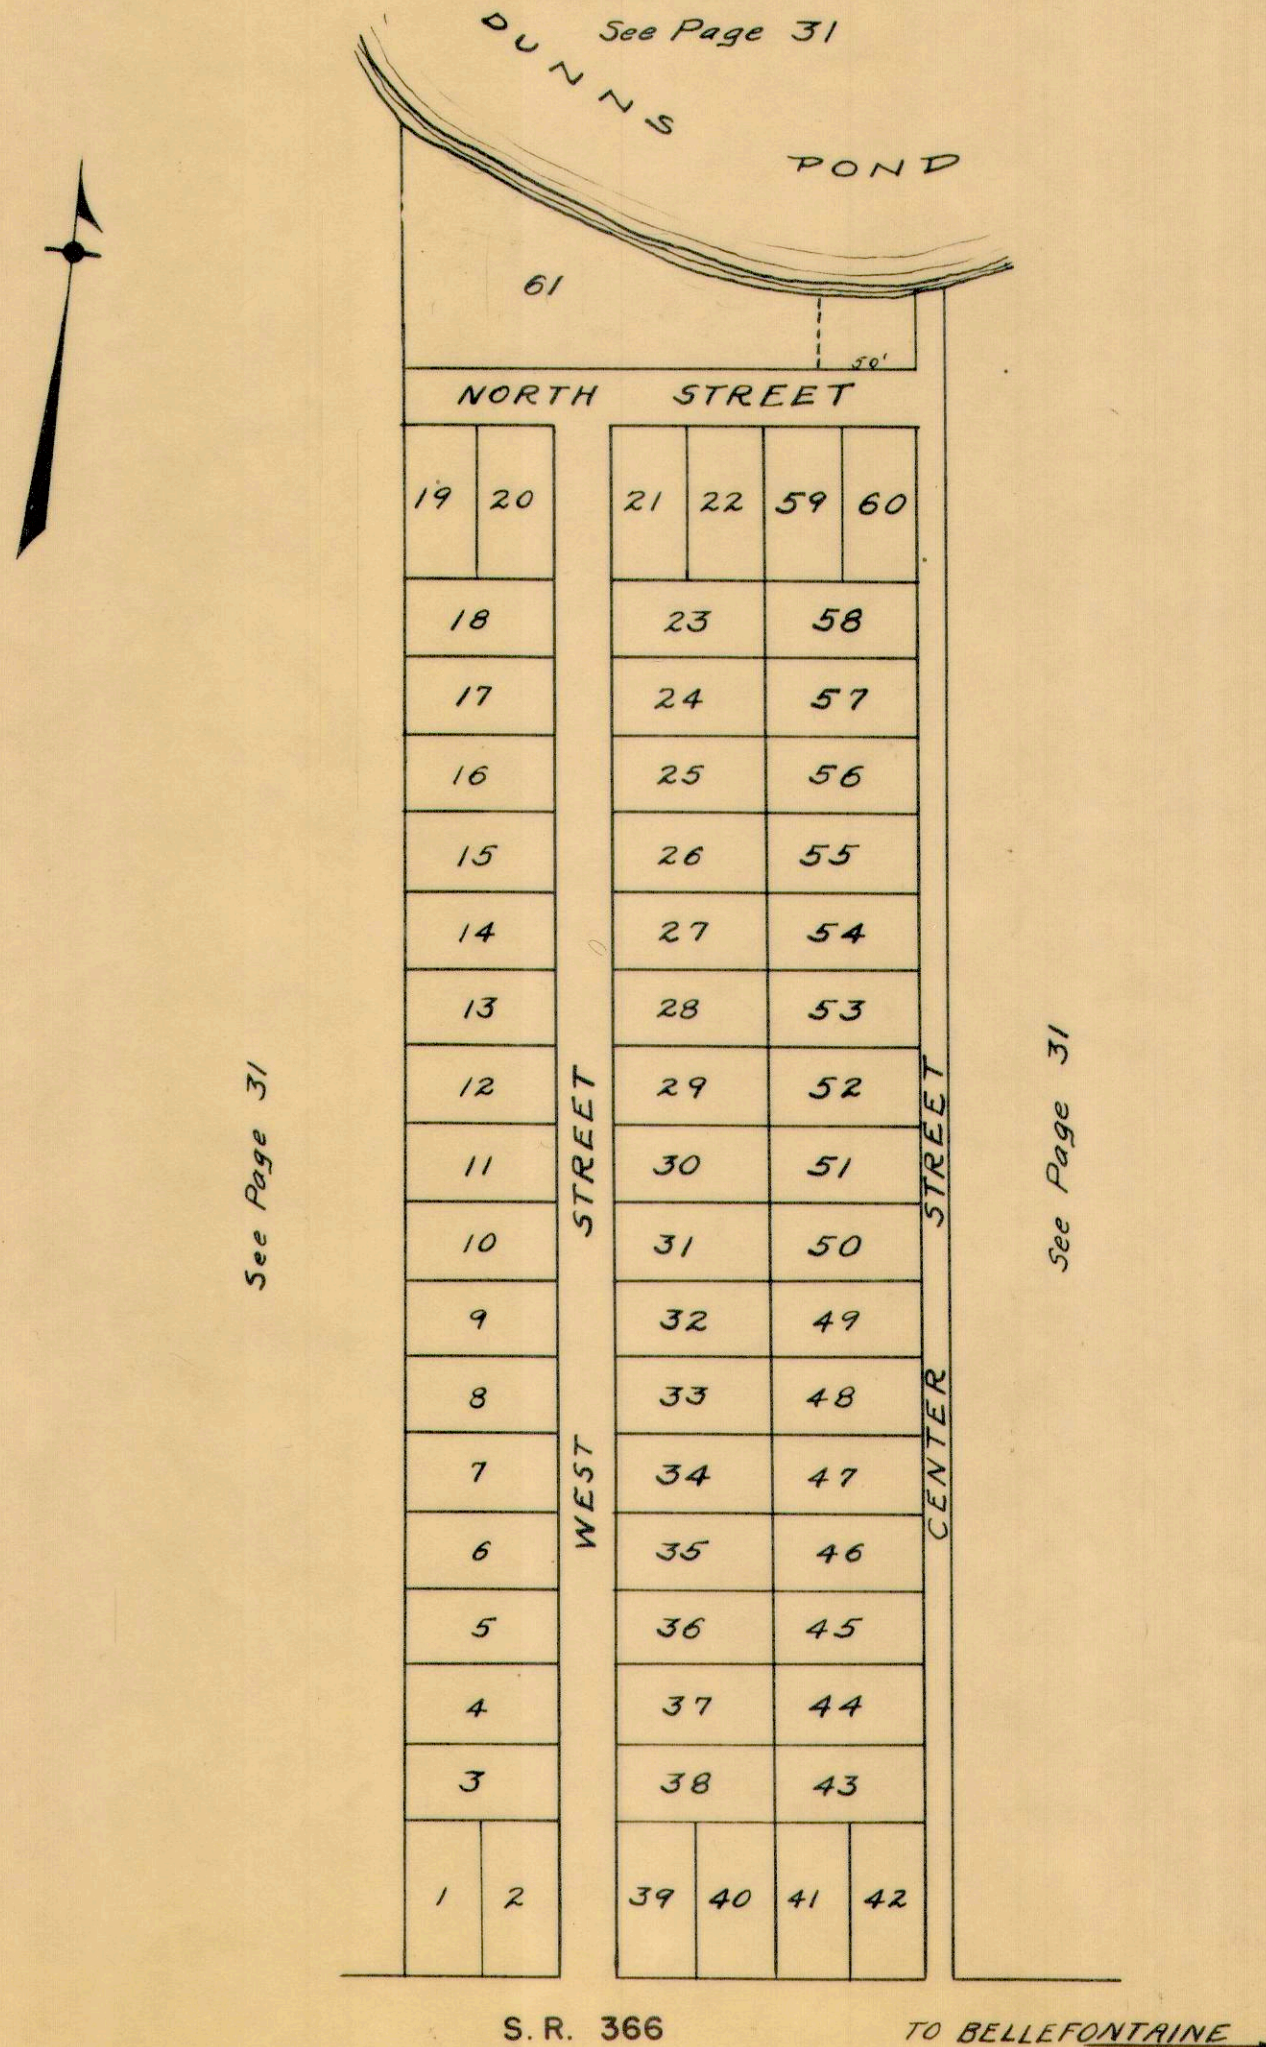 See Page 31
DUNNS
POND
61
50'
NORTH STREET
19 20 21 22 59 60
18 23 58
17 24 57
16 25 56
15 26 55
14 27 54
13 28 53
12 29 52
11 30 51
10 31 50
9 32 49
8 33 48
7 34 47
6 35 46
5 36 45
4 37 44
3 38 43
1 2 39 40 41 42
See Page 31
WEST STREET
CENTER STREET
See Page 31
S.R. 366
TO BELLEFONTAINE